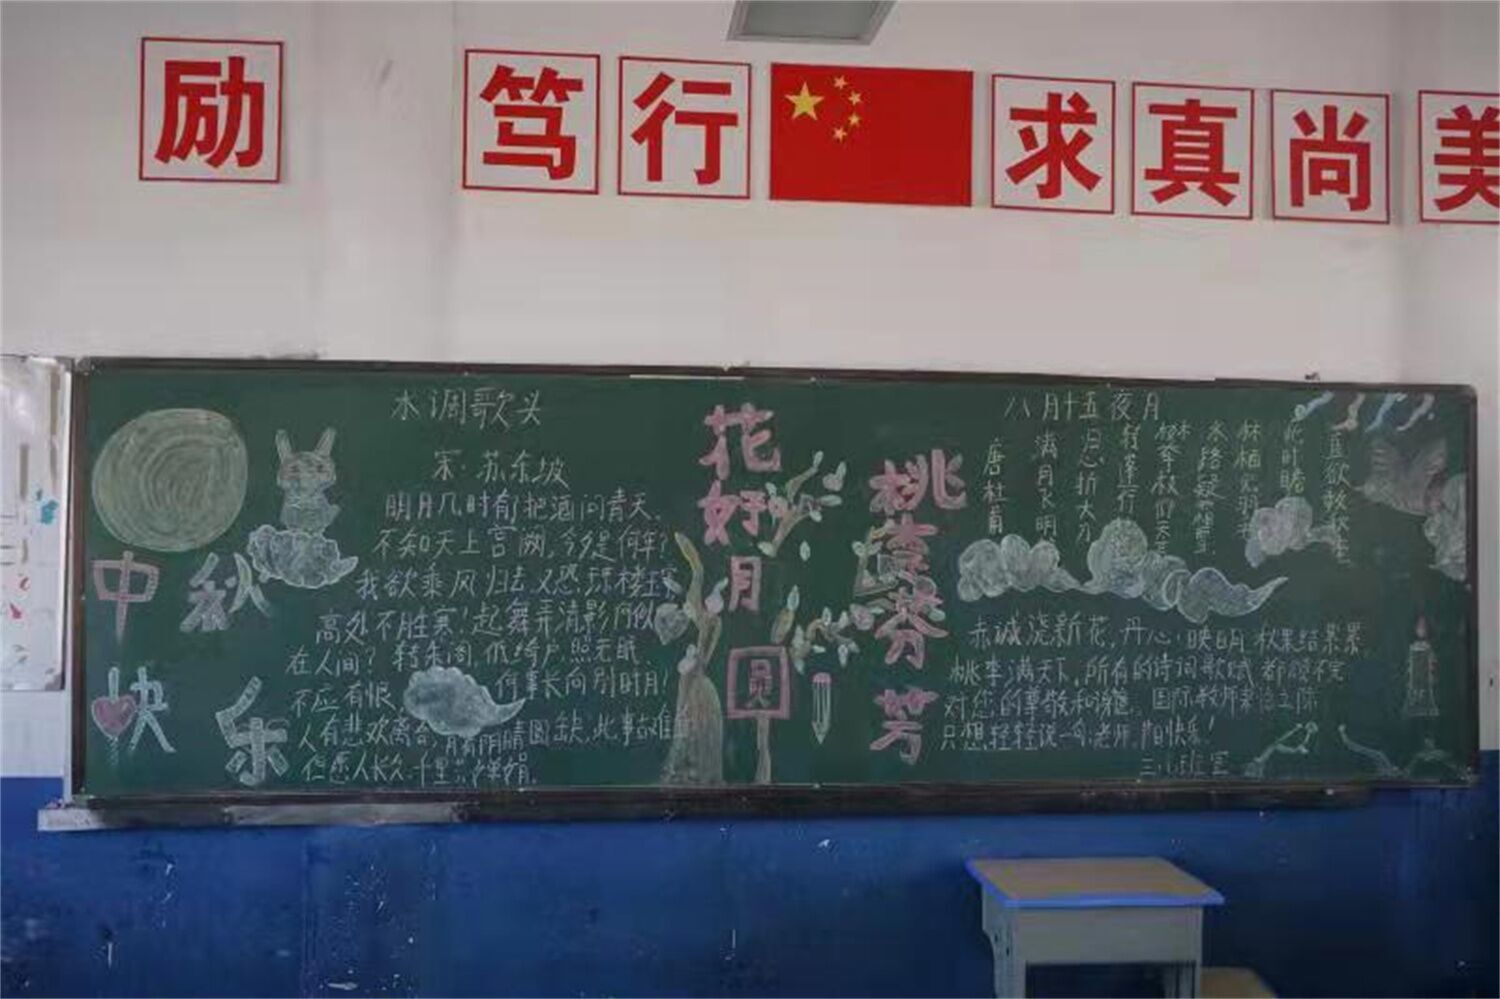 励 笃 行 求 真 尚 美
水调歌头
宋·苏东坡
明月几时有?把酒问青天
不知天上宫阙,今夕是何年?
我欲乘风归去又恐琼楼玉宇
高处不胜寒!起舞弄清影何似
在人间?转朱阁,低绮户照无眠
不应有恨 何事长向别时月!
人有悲欢离合,月有阴晴圆缺,此事古难全
但愿人长久千里共婵娟.
中秋
快乐
花好月圆
桃李芬芳
八月十五夜月
唐杜甫
满月飞明
归心折大刀
转蓬行
攀
水路疑霜雪
林栖见羽毛
此时瞻
直欲数秋毫
赤诚浇新花,丹心映 秋果结累累
桃李满天下,所有的诗词歌赋都颂不完
对您的尊敬和 国际教师
只想轻轻说一句老师,节日快乐!
三 班宣